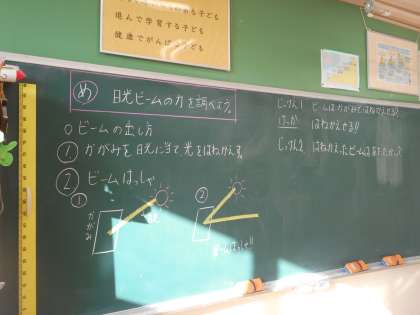 進んで学習する子ども
健康でがんばる子ども
め 日光ビームの力を調べよう。
○ビームの出し方
① かがみを日光に当て光をはねかえす。
② ビームはっしゃ
①
かがみ
②
ビームはっしゃ!!
じっけん1 ビームはかがみではねかえせる?
けっか はねかえせる!!
じっけん2 はねかえったビームはあたたかい?